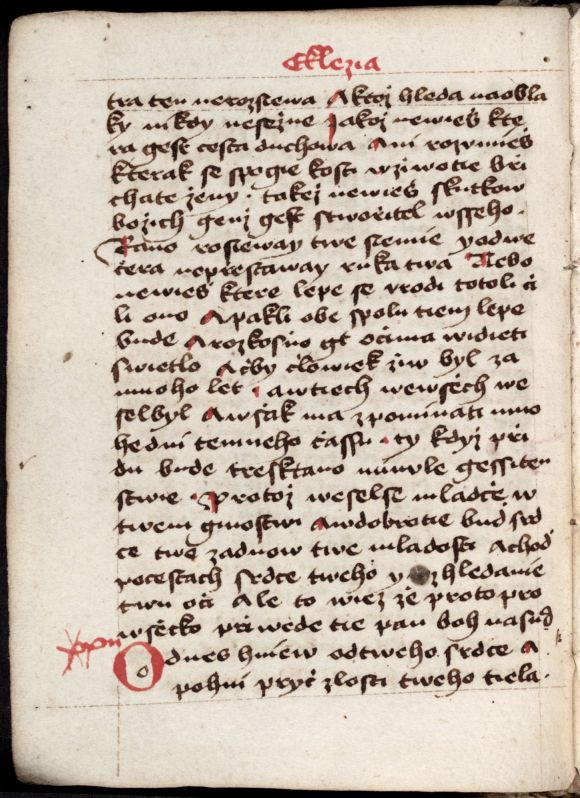 Ekklezia
tra ten nerozsiewa A ktož hleda naobla
ky nikdy nesežne Jakož newieš kte
ra gest cesta duchowa Ani rozumieš
kterak se spogie kosti wžiwotie bři
chate ženy · takež newieš skutkow
božich genž gest stwořitel wsseho ·
Rano rozsieway twe siemie ywodwe
čera neprzestaway ruka twa Nebo
newieš ktere lepe se vrodi totoli či
li ono A pakli obe spolu tiem lepe
bude A rozkošno gt očima widieti
swietlo Ačby člowiek žiw byl za
mnoho let · a wtiech wewšěch we
sel byl A wšak ma zpominati mno
he dni temneho čassu · ty kdyz přj
du bude tresktano minule gessiten
stwie · Protož weselse mladče w
twem ginostwi A wdobrotie bud srd
ce twe zadnow twe mladosti A chod
pocestach srdce tweho y wzhledanie
twu oči Ale to wiez že proto pro
wšečko přiwede tie pan boh nasud
xpxii
Odnes hniew odtweho srdce A
pohni pryč zlosti tweho tiela ·